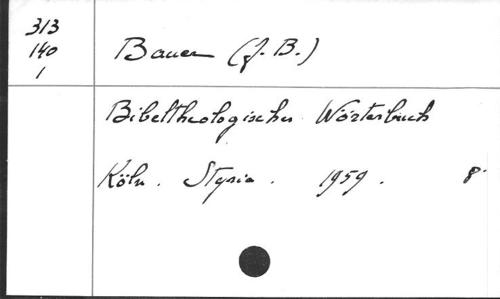 313
140
1
Bauer (J. B.)
Bibeltheologisches Wörterbuch
Köln. Styria. 1959. 8°